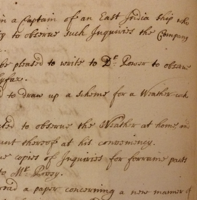 in a Captain of an East India Ship who
to observe such Inquiries the Company
pleased to write to Dr. Power to observe
to draw up a Scheme for a Weather
to observe the Weather at home in
thereof at his conveniency.
copies of Inquiries for forraine parts
to Mr.
a paper concerning a new manner of